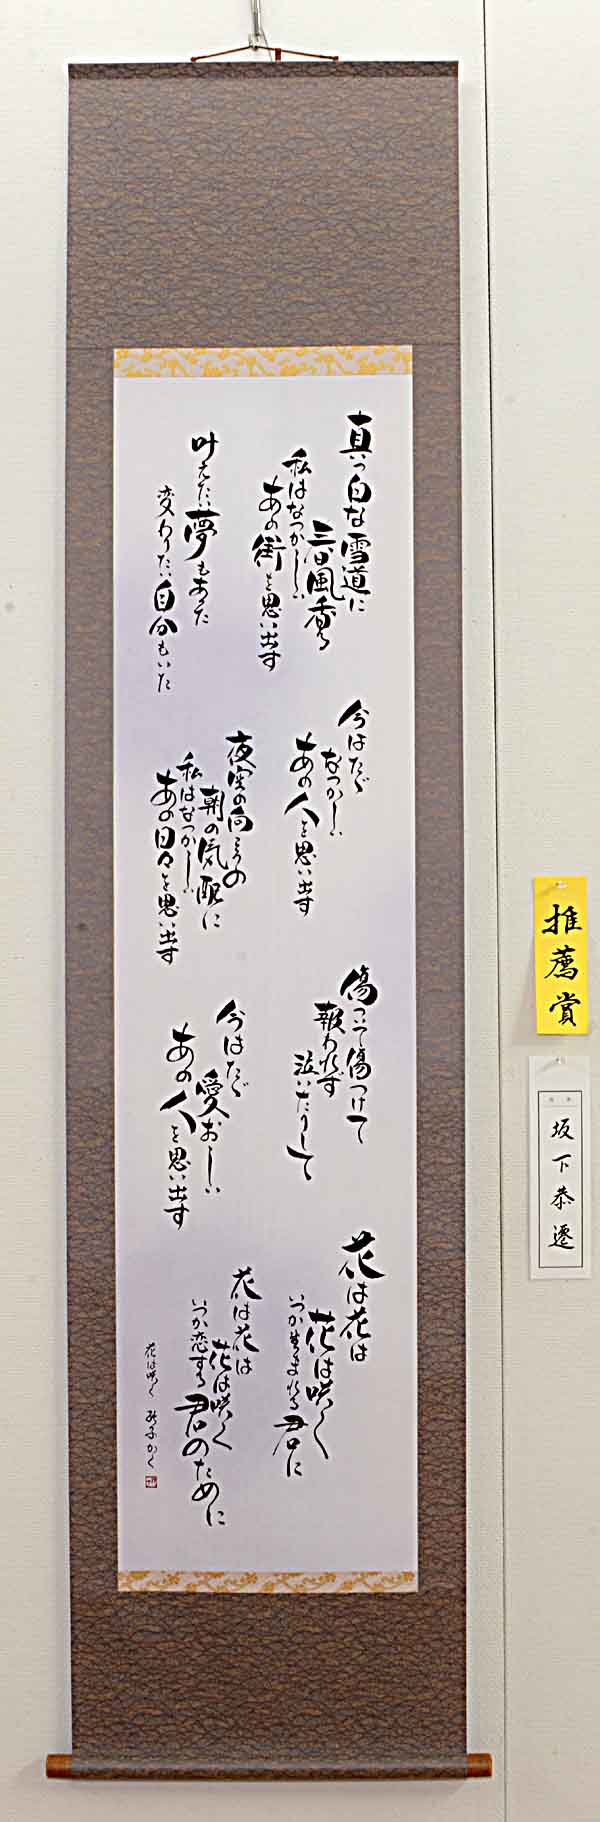 真っ白な雪道に
春風香る
私はなつかしい
あの街を思い出す
叶えたい夢もあった
変わりたい自分もいた
今はただ
なつかしい
あの人を思い出す
夜空の向こうの
朝の気配に
私はなつかしい
あの日々を思い出す
傷ついて傷つけて
報われず
泣いたりして
今はただ
愛おしい
あの人を思い出す
花は花は
花は咲く
いつか生まれる君に
花は花は
花は咲く
いつか恋する君のために
花は咲く
かく
推薦賞
坂下恭遷